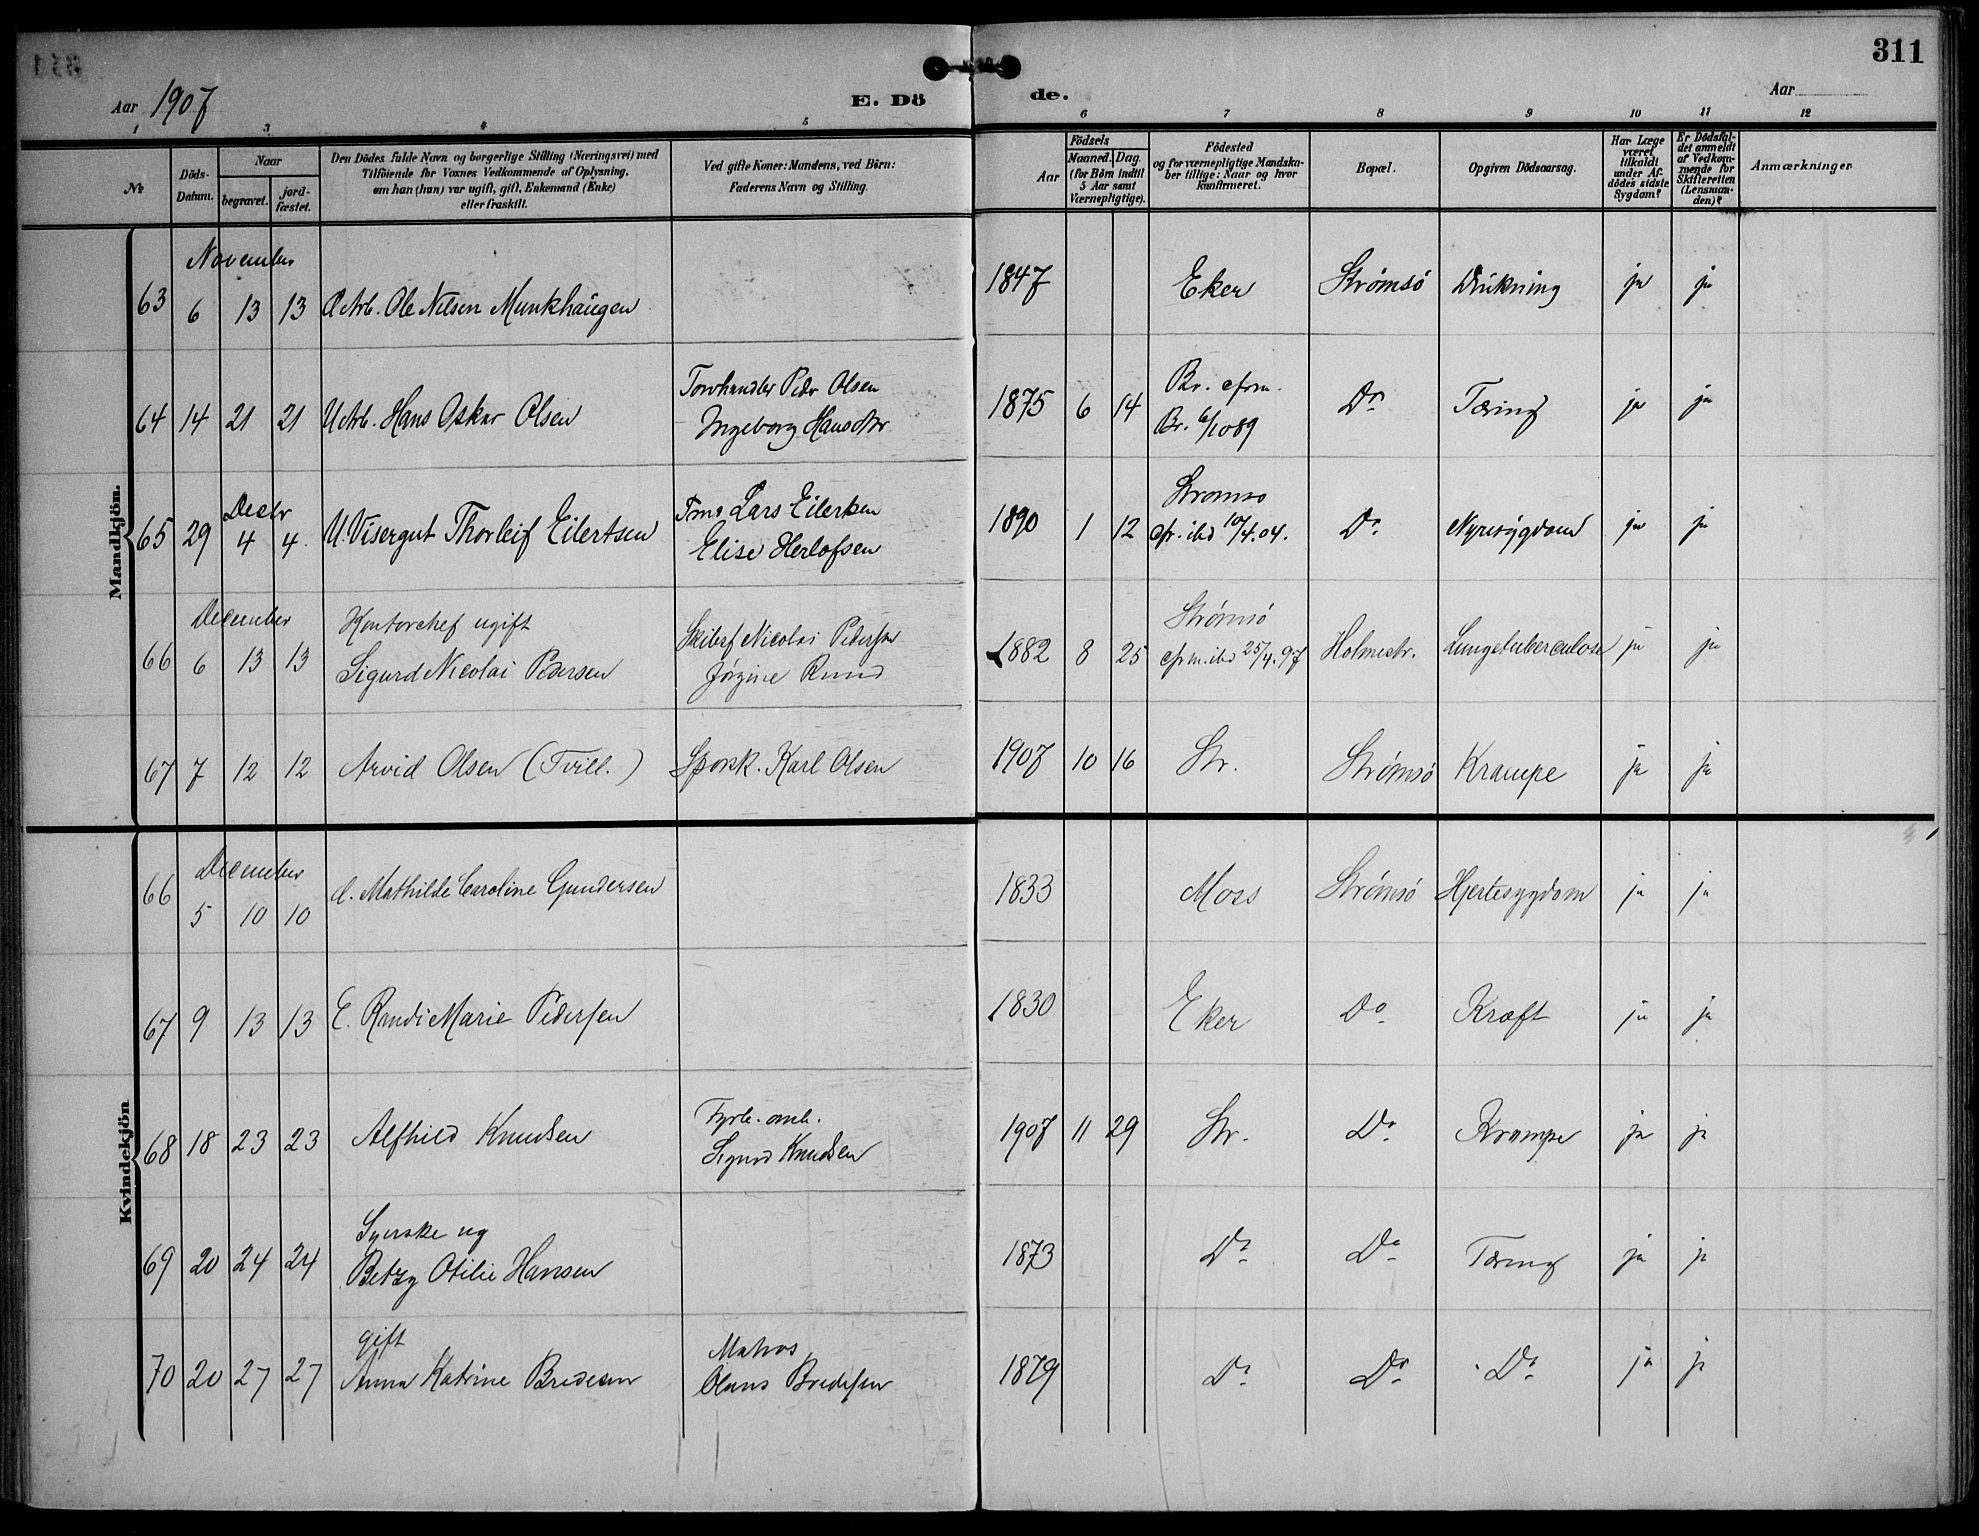 311
Aar 1907
E. Döde.
Aar
1 3 4 5 6 7 8 9 10 11 12
№
Döds-Datum.
Naar
begravet.
jord-fæstet.
Den Dödes fulde Navn og borgerlige Stilling (Næringsvei) med
Tilföiende for Voxnes Vedkommende af Oplysning,
om han (hun) var ugift, gift, Enkemand (Enke)
eller fraskilt.
Ved gifte Koner: Mandens, ved Börn:
Faderens Navn og Stilling.
Födsels
Aar
Maaned. Dag.
(for Börn indtil
5 Aar samt
Værnepligtige).
Födested
og for værnepligtige Mandska-
ber tillige: Naar og hvor
konfirmeret.
Bopæl.
Opgiven Dödsaarsag.
Har Læge
været
tilkaldt
under Af-
dödes sidste
Sygdom?
Er Dödsfal-
det anmeldt
af Vedkom-
mende for
Skifteretten
(Lensman-
den)?
Anmærkninger
Mandkjön.
November
63 6 13 13 Arb. Ole Nilsen Munkhaugen 1847 Eker Strømsö Drukning ja ja
Torvhandler Peder Olsen
Br. cfrm.
64 14 21 21 U Arb. Hans Oskar Olsen
Ingeborg Hansdtr
1875 6 14
Br. 6/10 89
Do Tæring ja ja
Decbr
Lars Eilertsen
Strømsø
65 29 4 4. U. Visergut Thorleif Eilertsen
Elise Herlofsen
1890 1 12 cfr. ibd 10/4.04. Do Nyresygdom ja ja
December
Kontorchef ugift
Skibsf Nicolai Pedersen
Strømsö
66 6 13 13 Sigurd Nicolai Pedersen
Jørgine Ruud
1882 8 25 cfrm. ibd 25/4.97 Holmestr. Lungetuberculose ja ja
67 7 12 12 Arvid Olsen (Tvill.) Sporsk. Karl Olsen 1907 10 16 Str. Strømsö Krampe ja ja
Kvindekjön
December
66 5 10 10 E. Mathilde Caroline Gundersen 1833 Moss Strømsö Hjertesygdom ja ja
67 9 13 13 E. Randi Marie Pedersen 1830 Eker Do Kræft ja ja
Fyrb.
68 18 23 23 Alfhild Knudsen
Sigurd Knudsen
1907 11 29 Str. Do Krampe ja ja
Syerske ug
69 20 24 24 Betzy Otilie Hansen 1873 Do Do Tæring ja ja
gift
Matros
70 20 27 27 Anna Katrine Bredesen
Olaus Bredesen
1879 Do Do Do ja ja